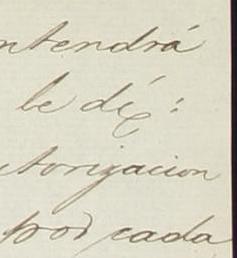 ntendrá
le dé
torizacion
por cada